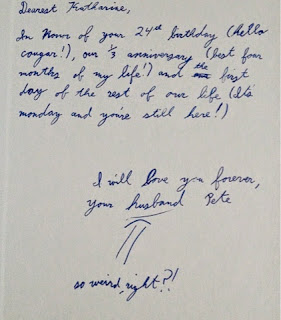 Dearest Katharine,
In Honor of your 24th birthday (hello
cougar!), our ⅓ anniversary (best four
months of my life!) and the first
day of the rest of our life (It's
monday and you're still here!)
I will love you forever,
your husband Pete
so weird, right?!